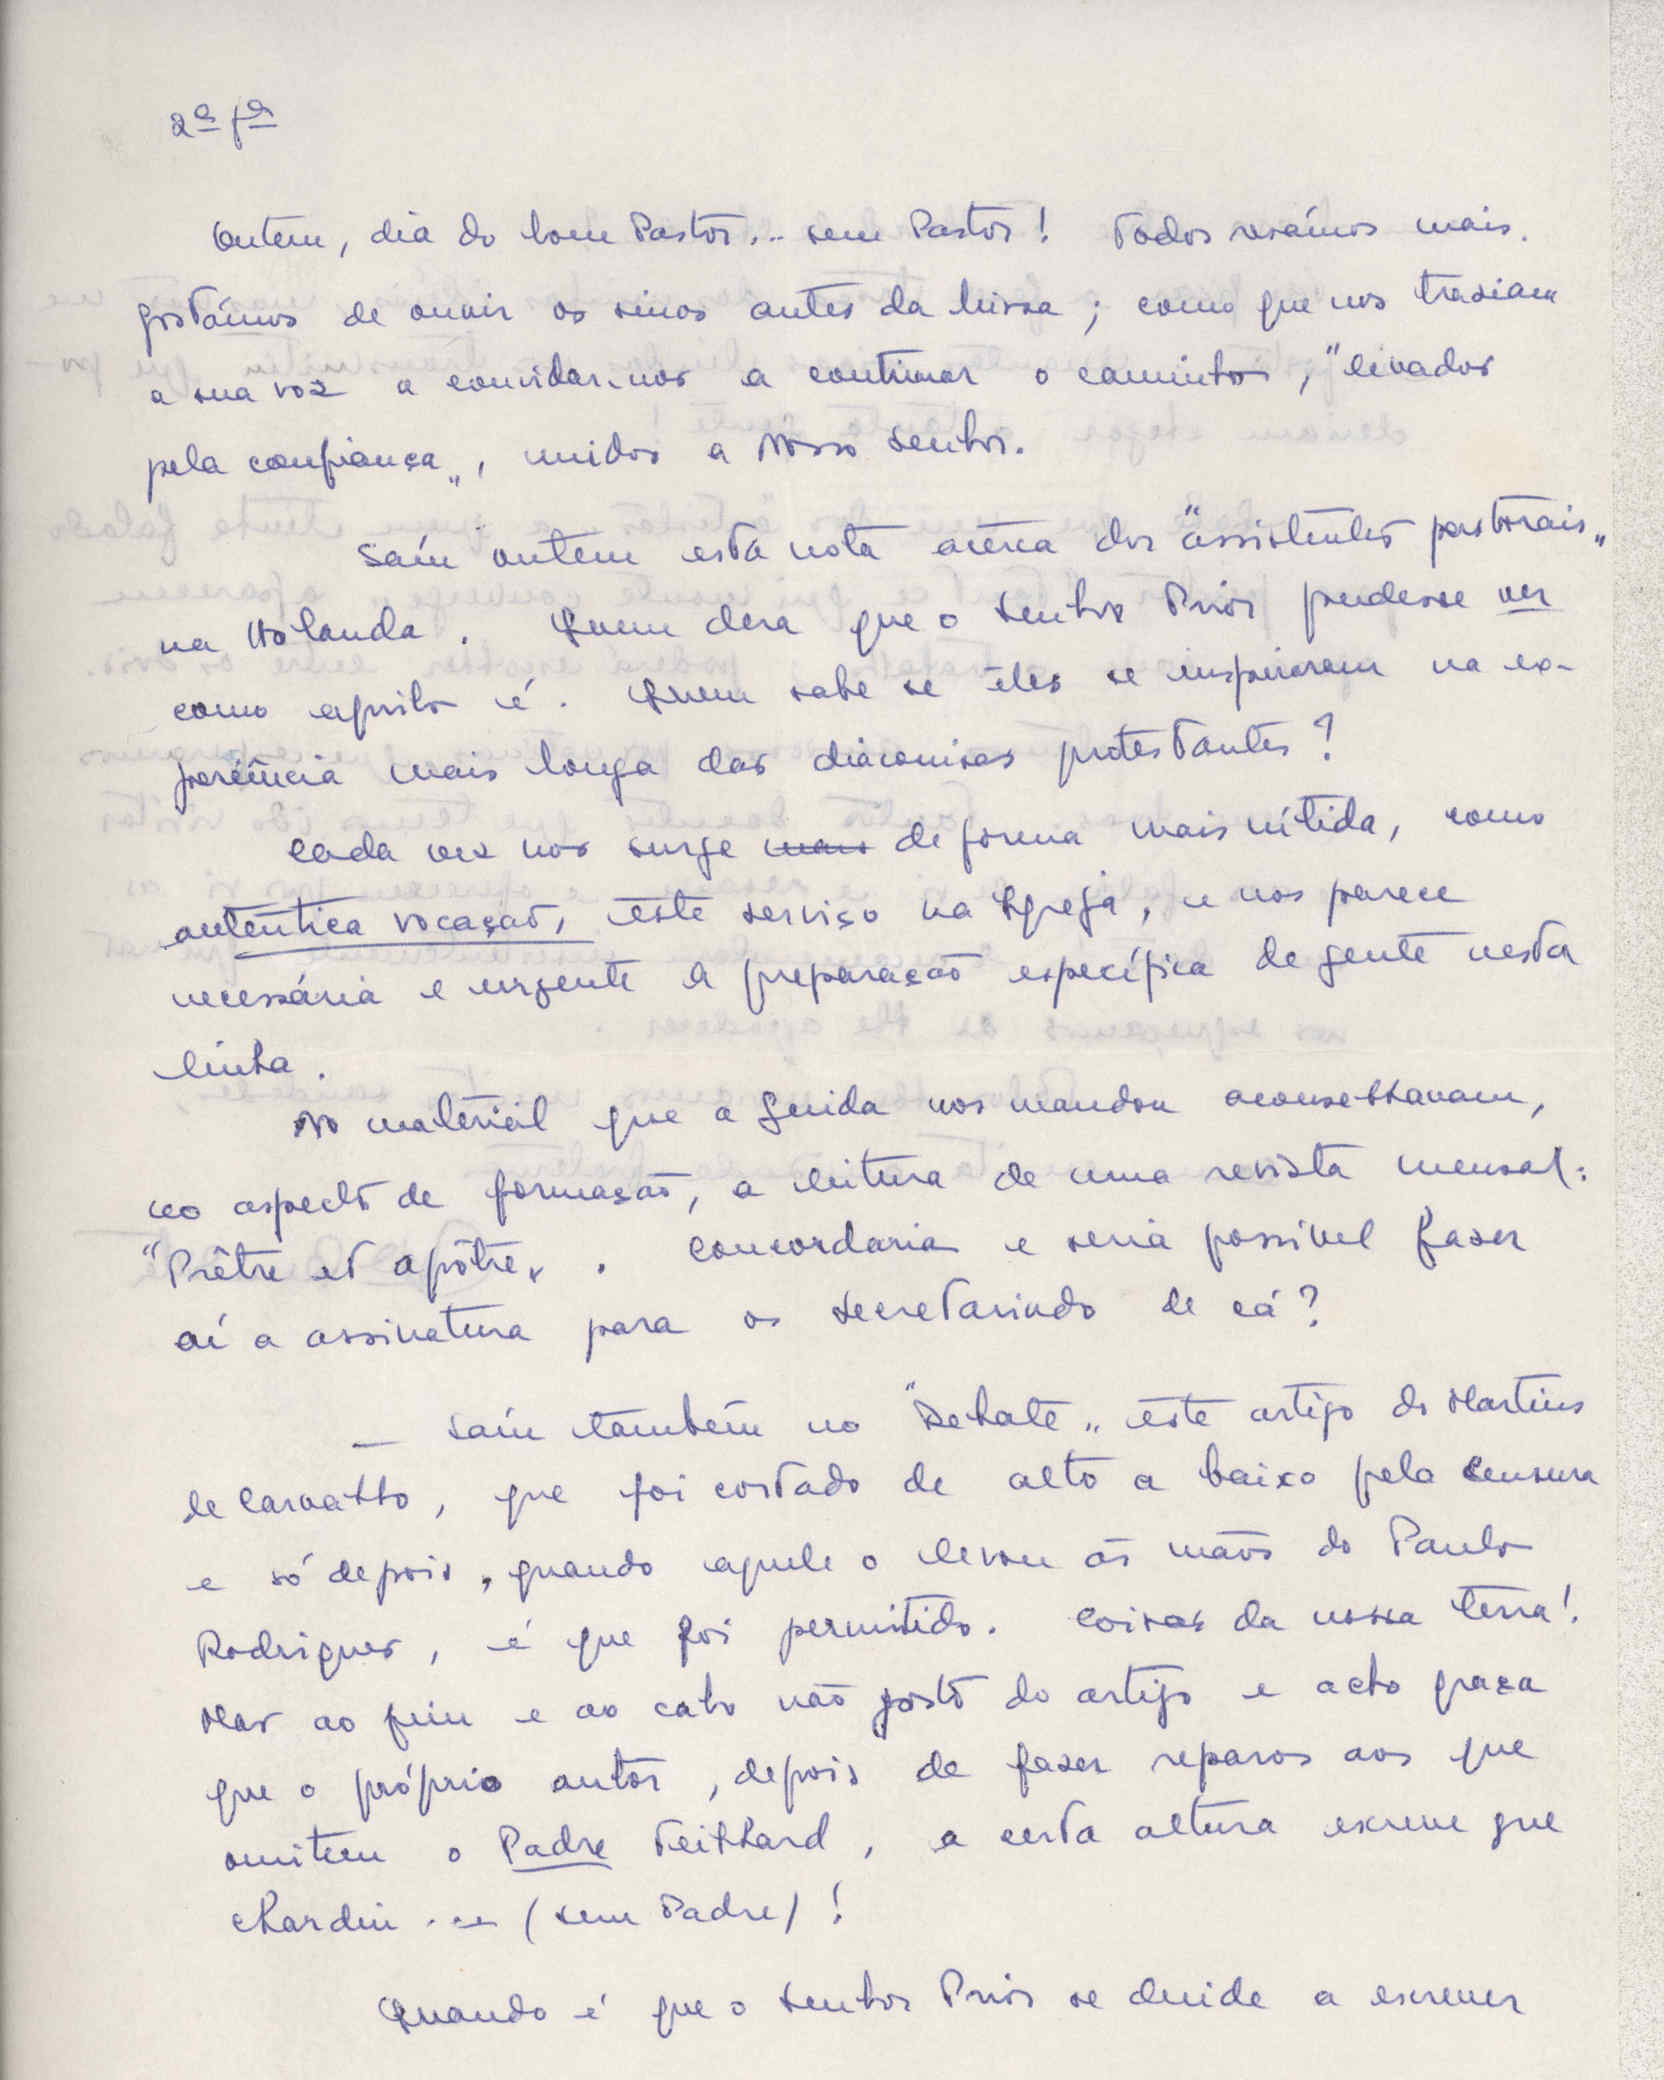 2ª fª
Ontem, dia do bom Pastor... sem Pastor! Todos resámos mais.
gostámos de ouvir os sinos antes da Missa; como que nos trasiam
a sua voz a convidar-nos a continuar o caminho, "levados
pela confiança", unidos a Nosso Senhor.
Saíu ontem esta nota acêrca dos "assistentes pastorais"
na Holanda. Quem dera que o Senhor Prior pudesse ver
como aquilo é. Quem sabe se êles se inspiraram na ex-
periência mais longa das diaconisas protestantes?
Cada vez nos surge mais de forma mais nítida, como
autêntica vocação, êste serviço na Igreja, e nos parece
necessária e urgente a preparação específica de gente nesta
linha.
No material que a Guida nos mandou aconselhavam,
no aspecto de formação, a leitura de uma revista mensal:
"Prêtre et apôtre". Concordaria e seria possível fazer
aí a assinatura para os secretariado de cá?
— Saíu também no "Debate" êste artigo do Martins
de Carvalho, que foi cortado de alto a baixo pela Censura
e só depois, quando aquele o levou às mãos do Paulo
Rodrigues, é que foi permitido. Coisas da nossa terra!.
Mas ao fim e ao cabo não gosto do artigo e acho graça
que o próprio autor, depois de fazer reparos aos que
omitem o Padre Teilhard, a certa altura escreve que
Chardin ... (sem Padre)!
Quando é que o Senhor Prior se decide a escrever